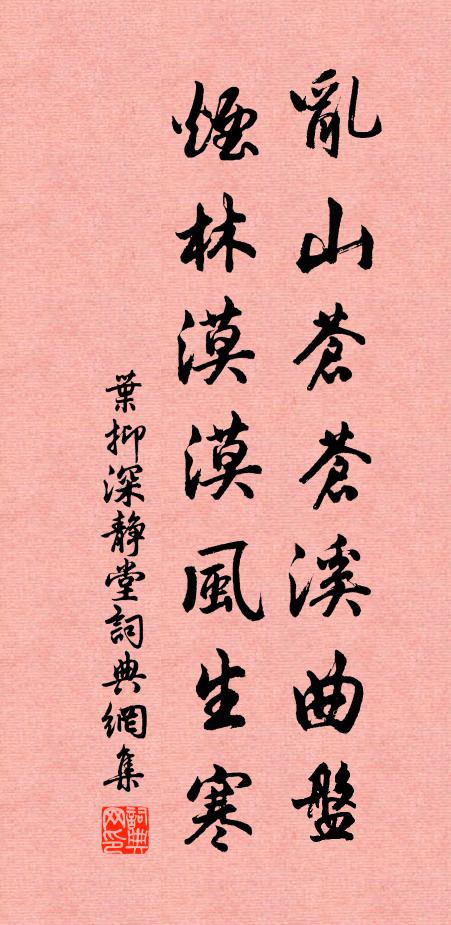 亂山蒼蒼溪曲盤
煙林漠漠風生寒
葉抑深靜堂詞典網集
詞典网印